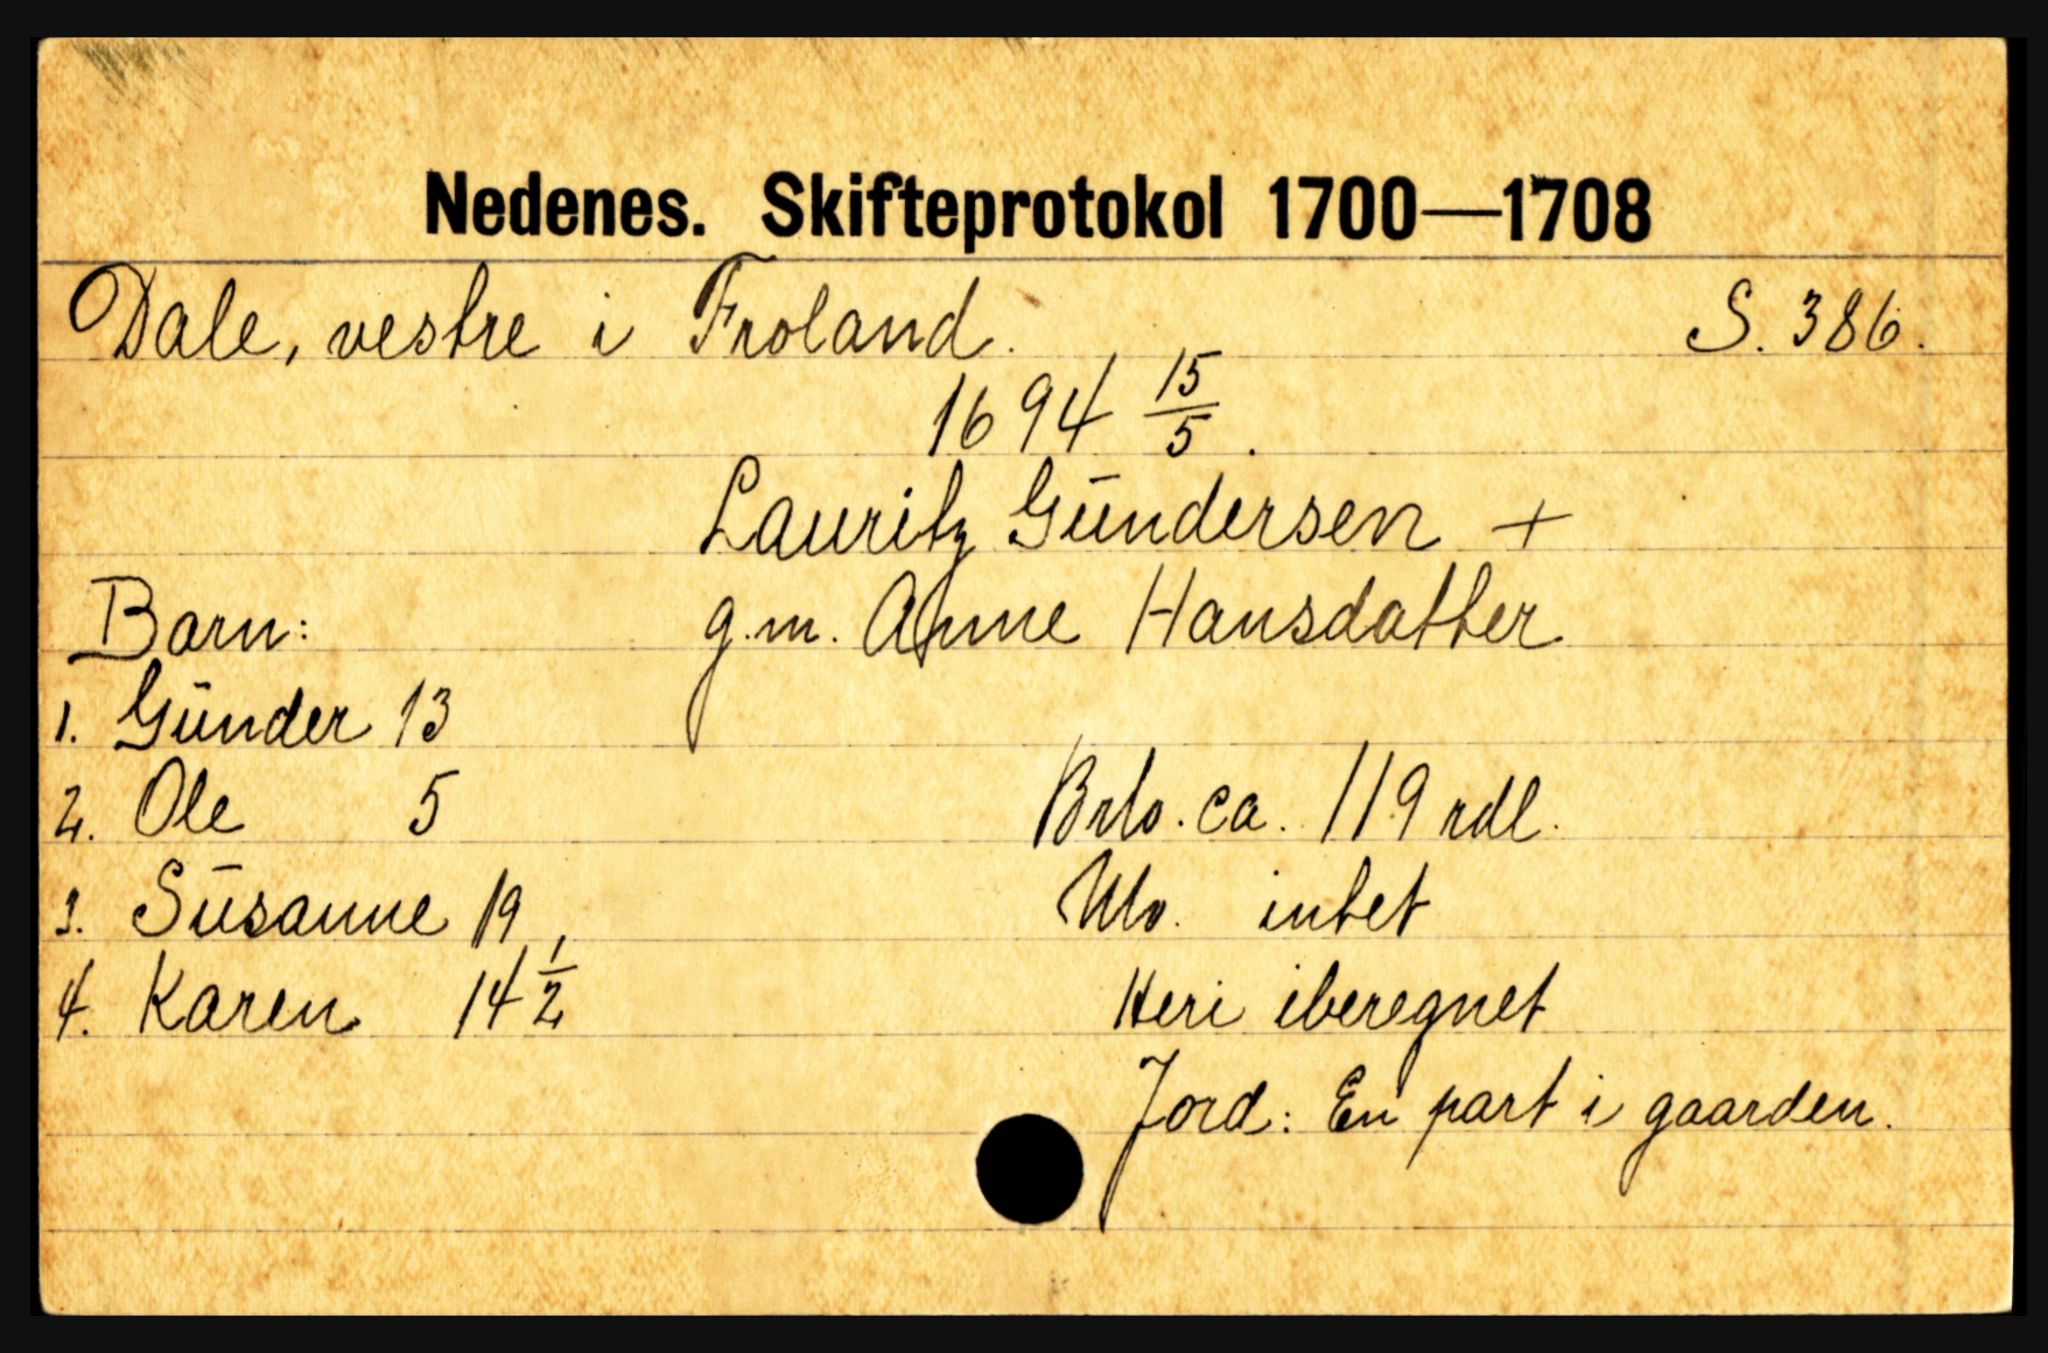 Nedenes. Skifteprotokol 1700—1708
Dale, vestre i Froland. S. 386.
1694 15/5.
Lauritz Gŭndersen +
g.m. Anne Hansdatter
Barn:
1. Gŭnder 13
2. Ole 5
3. Sŭsanne 19
4. Karen 14 1/2
Brto. ca. 119 rdl.
Nto. intet
Heri iberegnet
Jord: En part i gaarden.